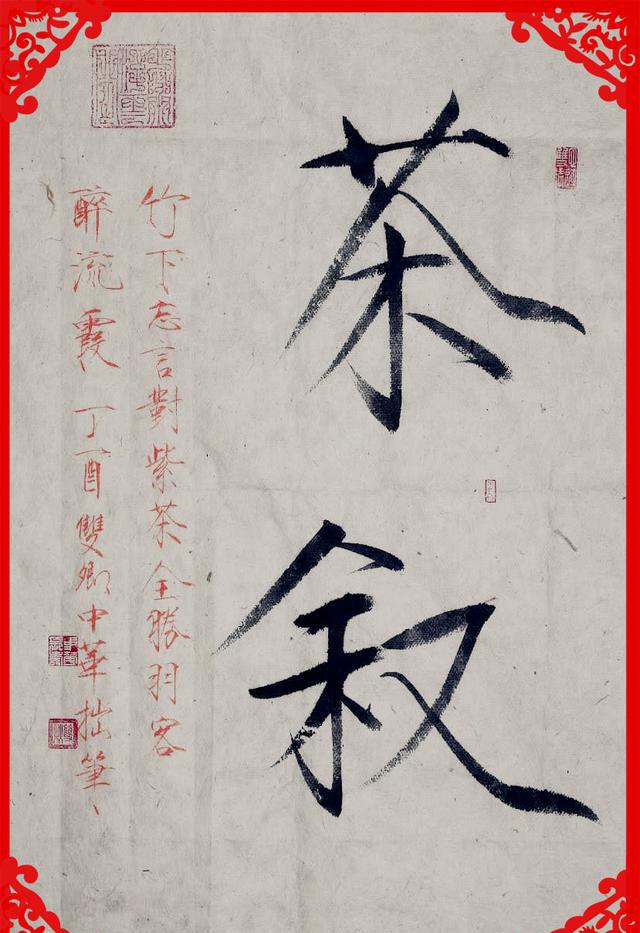 茶叙
竹下忘言對紫茶全勝羽客
醉流霞 丁酉雙卿中華拙筆